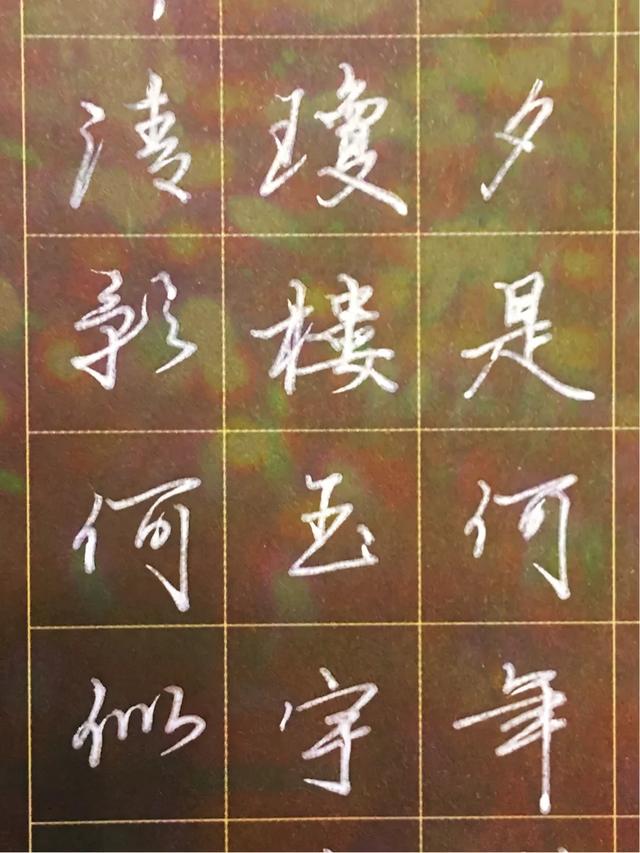 夕是何年
瓊樓玉宇
清影何似